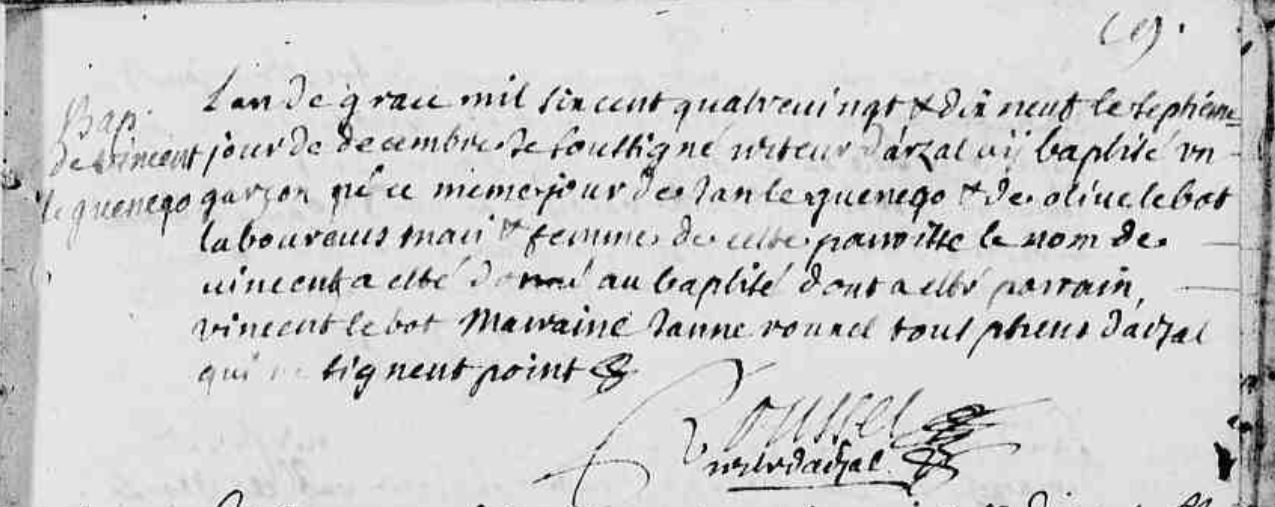 Bap.
de vincent
le guenego
L an de grace mil six cent quatrevingt & dix neuf le septiéme
jour de decembre Je soussigné recteur d'arzal ay baptisé un
garzon né ce meme jour de Jan le guenego & de olive le bot
laboureurs mari & femme de cette parroisse le nom de
vincent a esté donné au baptisé dont a esté parrain,
vincent le bot Marraine Janne tous d'arzal
qui ne signent point
Roussel
d'arzal